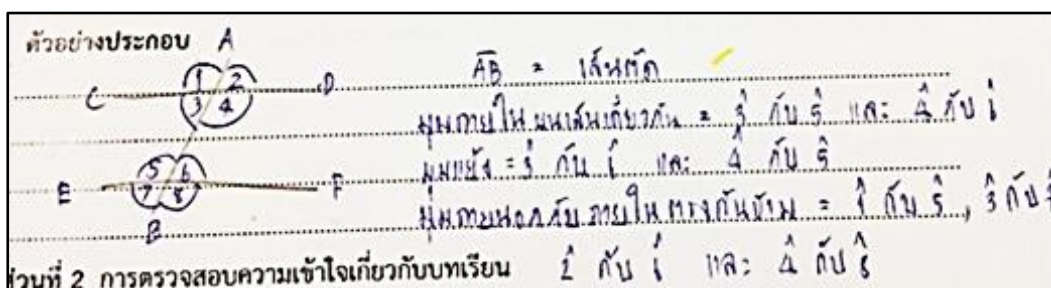 ตัวอย่างประกอบ A
C 1 2 D
3 4
E 5 6 F
7 8
B
AB = เส้นตัด
มุมภายในบนเส้นเดียวกัน = 3̂ กับ 5̂ และ 4̂ กับ 6̂
มุมแย้ง = 3̂ กับ 6̂ และ 4̂ กับ 5̂
มุมภายนอกกับภายในตรงกันข้าม = 1̂ กับ 5̂ , 3̂ กับ 7̂
2̂ กับ 6̂ และ 4̂ กับ 8̂
ส่วนที่ 2 การตรวจสอบความเข้าใจเกี่ยวกับบทเรียน